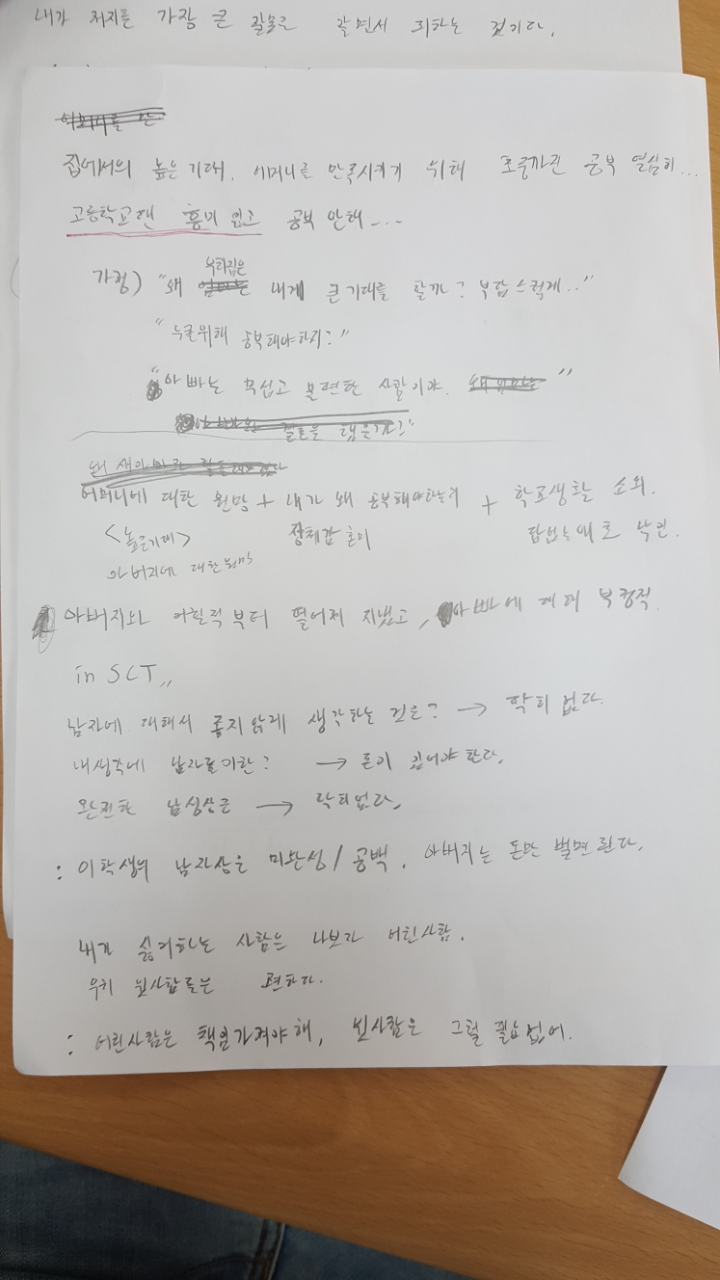 내가 저지른 가장 큰 잘못은 알면서 피하는 것이다.
집에서의 높은기대. 어머니를 만족시키기 위해 초중까진 공부 열심히...
고등학교땐 흥미 없고 공부 안해...
가정) "왜 우리집은 내게 큰기대를 할까? 부담스럽게.."
"누굴위해 공부해야하지?"
"아빠는 무섭고 불편한 사람이야. "
결혼을 했을까?"
어머니에 대한 원망 + 내가 왜 공부해야하는지 + 학교생활 소외.
<높은기대> 정체감 혼미 답없는애로 낙인.
아버지에 대한원망
아버지와 어릴적부터 떨어져 지냈고, 아빠에 게 부정적.
in SCT,,
남자에 대해서 좋지않게 생각하는 것은? → 딱히 없다.
내생각에 남자들이란? → 돈이 있어야 한다.
완전한 남성상은 → 딱히없다.
: 이학생의 남자상은 미완성/공백. 아버지는 돈만 벌면 된다.
내가 싫어하는 사람은 나보다 어린사람.
우리 윗사람들은 편하다.
: 어린사람은 책임가져야해, 윗사람은 그럴 필요없어.